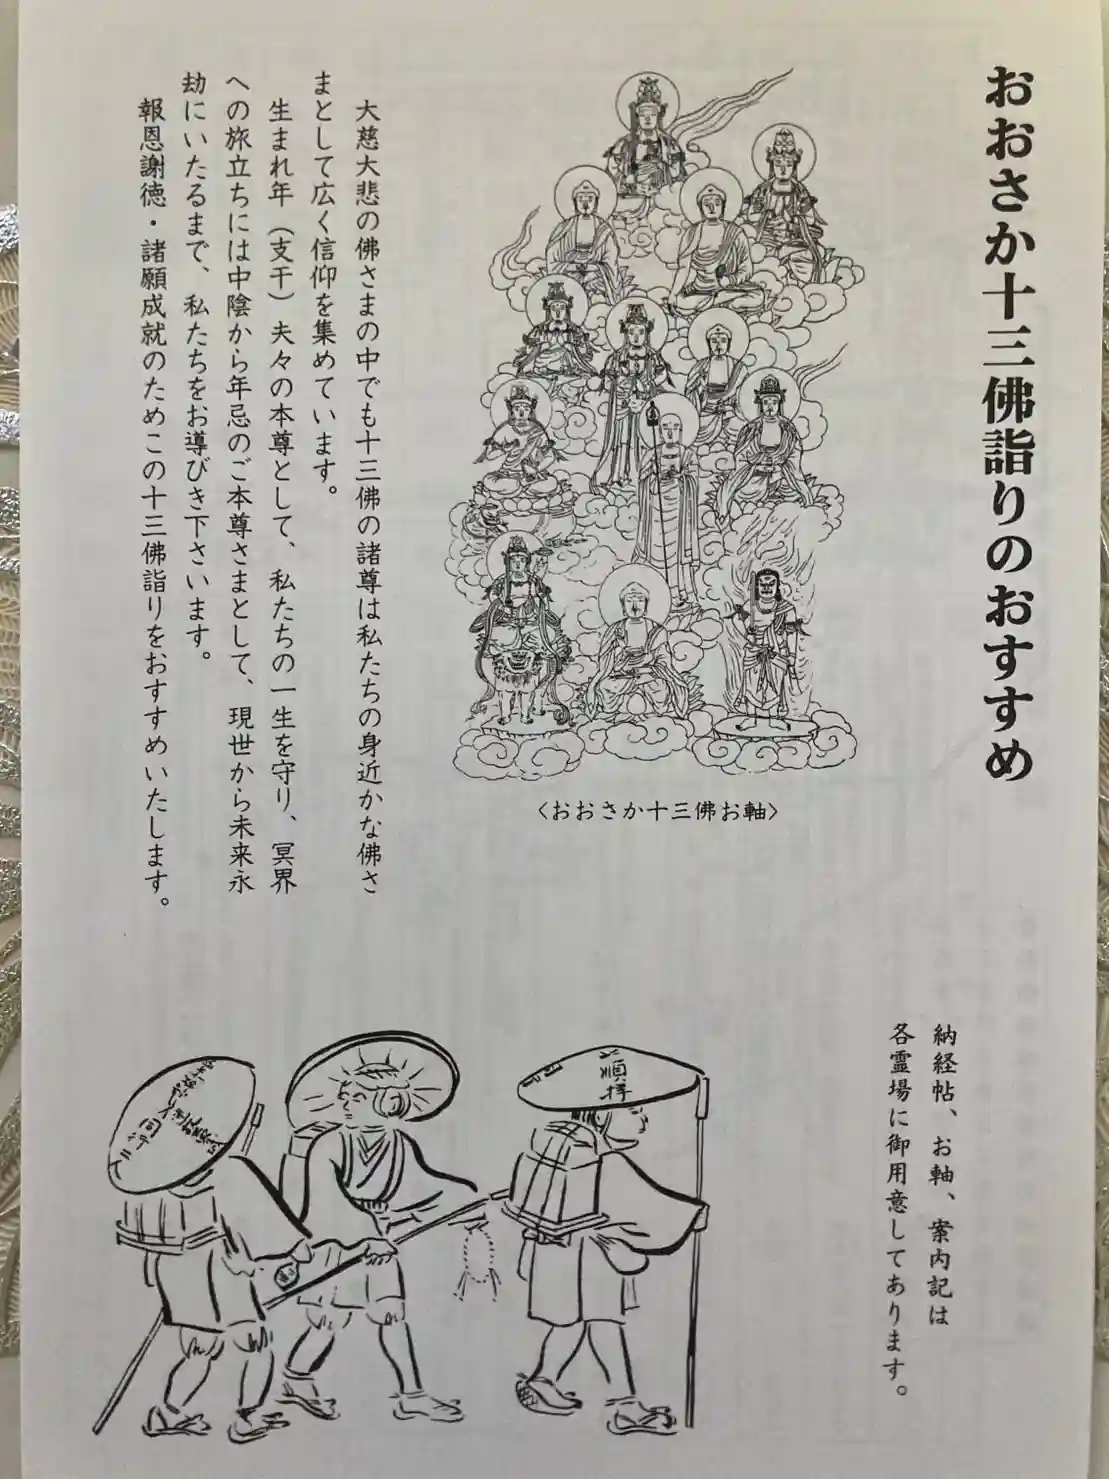 おおさか十三佛詣りのおすすめ
〈おおさか十三佛お軸〉
大慈大悲の佛さまの中でも十三佛の諸尊は私たちの身近かな佛さ
まとして広く信仰を集めています。
生まれ年（支干）夫々の本尊として、私たちの一生を守り、冥界
への旅立ちには中陰から年忌のご本尊さまとして、現世から未来永
劫にいたるまで、私たちをお導びき下さいます。
報恩謝徳・諸願成就のためこの十三佛詣りをおすすめいたします。
納経帖、お軸、案内記は
各霊場に御用意してあります。
順拝
同行二